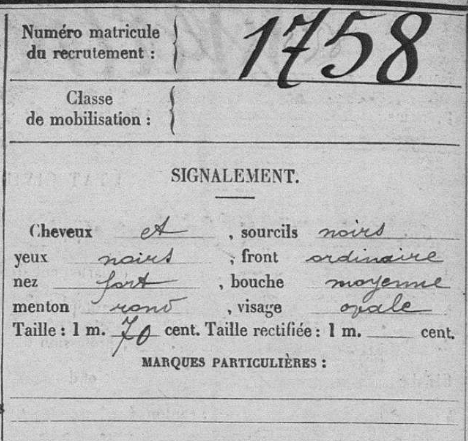 Numéro matricule
du recrutement : 1758
Classe
de mobilisation :
SIGNALEMENT.
Cheveux et , sourcils noirs
yeux noirs , front ordinaire
nez fort , bouche moyenne
menton rond , visage ovale
Taille : 1 m. 70 cent. Taille rectifiée : 1 m. cent.
MARQUES PARTICULIÈRES :